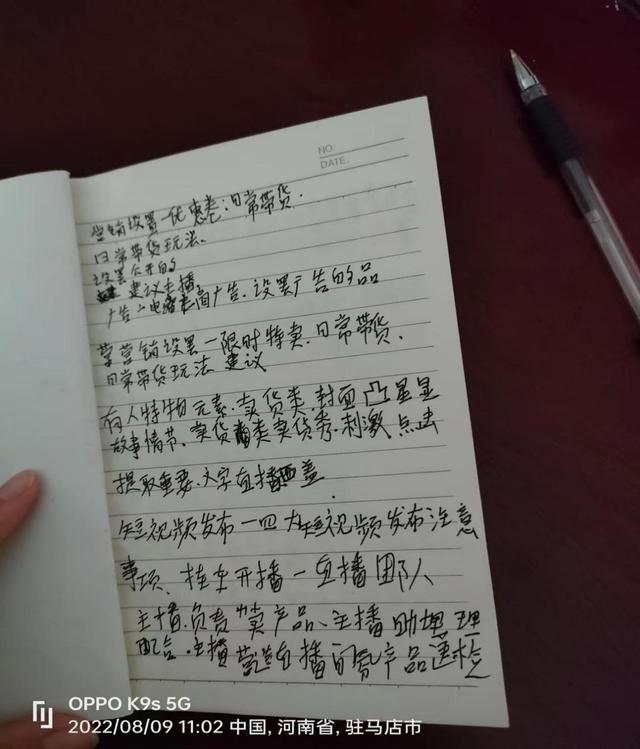 NO.
DATE.
营销设置一优惠卷:日常带货.
日常带货玩法、
设置公开的
建议主播
广告二电商广告、设置广告的品
营营销设置一限时特卖、日常带货、
日常带货玩法 建议
有人特物元素、卖货类、封面凸显
故事情节、卖货类卖货秀、刺激点击
提取重要、文字直播覆盖
短视频发布一四大短视频发布注意
事项、挂车开播一直播团队
主播、负责卖产品、主播助理
配合、主播营造直播 产品
OPPO K9s 5G
2022/08/09 11:02 中国, 河南省, 驻马店市